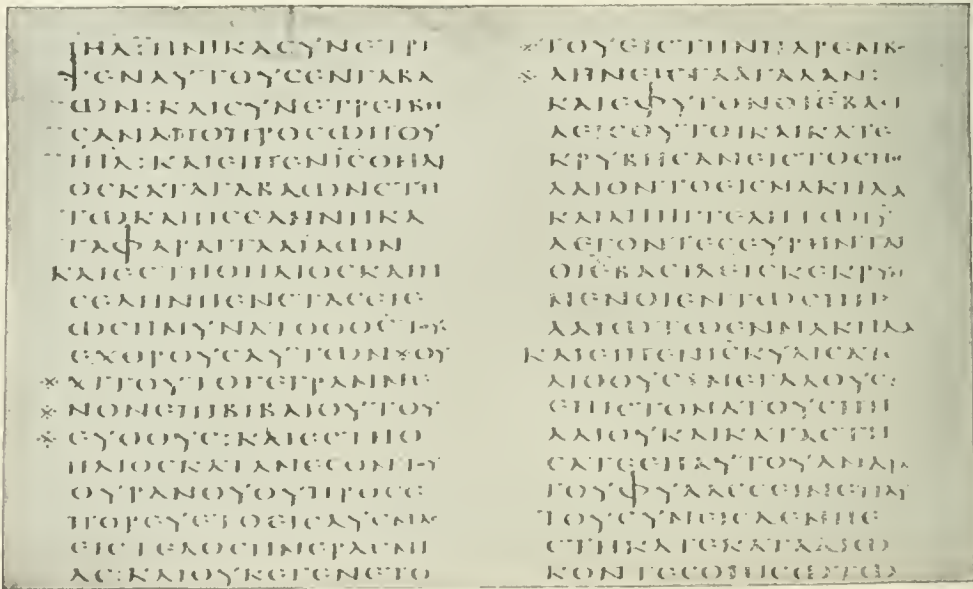 ΙΗΛ:ΗΝΙΚΑϹΥΝΕΤΡΙ
ΨΕΝΑΥΤΟΥϹΕΝΓΑΒΑ
ΩΝ:ΚΑΙϹΥΝΕΤΡΕΙΒΗ
ϹΑΝΑΠΟΠΡΟϹΩΠΟΥ
ΙΗΛ:ΚΑΙΕΙΠΕΝΙϹΟΗΛΙ
ΟϹΚΑΤΑΓΑΒΑΩΝϹΤΗ
ΤΩΚΑΙΗϹΕΛΗΝΗΚΑ
ΤΑΦΑΡΑΓΓΑΑΙΛΩΝ
ΚΑΙΕϹΤΗΟΗΛΙΟϹΚΑΙΗ
ϹΕΛΗΝΗΕΝϹΤΑϹΕΙΕ
ΩϹΗΜΥΝΑΤΟΟΘϹΤΟΥϹ
ΕΧΘΡΟΥϹΑΥΤΩΝ※ΟΥ
※ ΧΙΤΟΥΤΟΓΕΓΡΑΜΜΕ
※ ΝΟΝΕΠΙΒΙΒΛΙΟΥΤΟΥ
※ ΕΥΘΟΥϹ:ΚΑΙΕϹΤΗΟ
ΗΛΙΟϹΚΑΤΑΜΕϹΟΝΤΟΥ
ΟΥΡΑΝΟΥΟΥΠΡΟϹΕ
ΠΟΡΕΥΕΤΟΕΙϹΔΥϹΜΑϹ
ΕΙϹΤΕΛΟϹΗΜΕΡΑϹΜΙ
ΑϹ:ΚΑΙΟΥΚΕΓΕΝΕΤΟ
※ ΤΟΥΕΙϹΤΗΝΠΑΡΕΜΒΟ
※ ΛΗΝΕΙϹΓΑΛΓΑΛΑΝ:
ΚΑΙΕΦΥΓΟΝΟΙΕΒΑϹΙ
ΛΕΙϹΟΥΤΟΙΚΑΙΚΑΤΕ
ΚΡΥΒΗϹΑΝΕΙϹΤΟϹΠΗ
ΛΑΙΟΝΤΟΕΙϹΜΑΚΗΔΑ
ΚΑΙΑΠΗΓΓΕΛΗΤΩΙΥ
ΛΕΓΟΝΤΕϹΕΥΡΗΝΤΑΙ
ΟΙΕΒΑϹΙΛΕΙϹΚΕΚΡΥΜ
ΜΕΝΟΙΕΝΤΩϹΠΗ
ΛΑΙΩΤΩΕΝΜΑΚΗΔΑ
ΚΑΙΕΙΠΕΝΙϹΚΥΛΙϹΑΤΕ
ΛΙΘΟΥϹΜΕΓΑΛΟΥϹ:
ΕΠΙϹΤΟΜΑΤΟΥϹΠΗ
ΛΑΙΟΥΚΑΙΚΑΤΑϹΤΗ
ϹΑΤΕΕΠΑΥΤΟΥΑΝΔΡΑϹ
ΤΟΥΦΥΛΑϹϹΕΙΝΕΠΑΥ
ΤΟΥϹΥΜΕΙϹΔΕΜΗΕ
ϹΤΗΚΑΤΕΚΑΤΑΔΙΩ